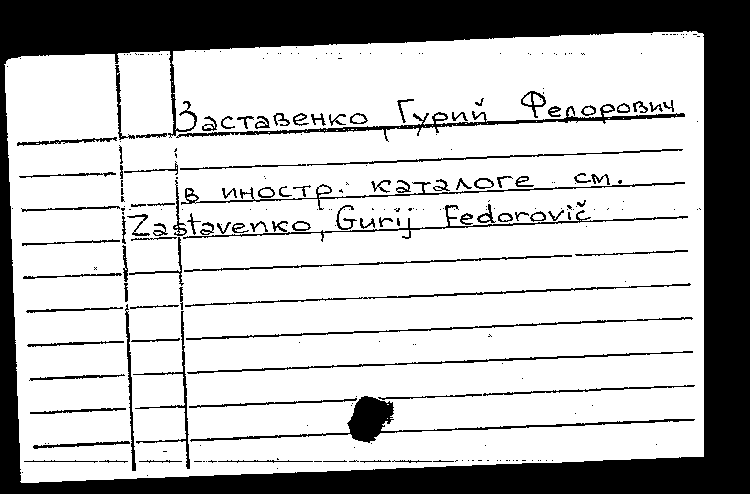 Заставенко, Гурий Федорович
в иностр. каталоге см.
Zastavenko, Gurij Fedorovič